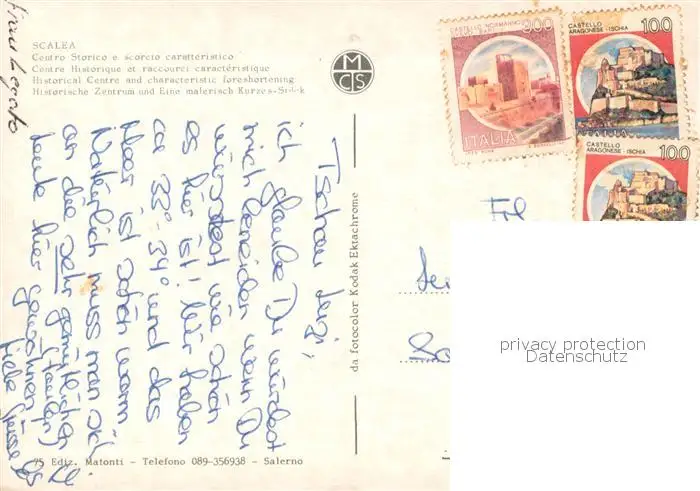 SCALEA
Centro Storico e scorcio caratteristico
Centre Historique et raccourci caractéristique
Historical Centre and characteristic foreshortening
Historische Zentrum und Eine malerisch Kurzes-Stück
MCS
CASTELLO NORMANNO
ITALIA
CASTELLO
ARAGONESE - ISCHIA
100
CASTELLO
ARAGONESE - ISCHIA
100
Tschau
ich glaube Du würdest
mich beneiden wenn Du
wüsstest wie schön
es hier ist! Wir haben
ca 33°-34° und das
Meer ist schön warm
Natürlich muss man sich
an die sehr gemütlichen
Leute hier gewöhnen
liebe Grüsse
da fotocolor Kodak Ektachrome
Frl
privacy protection
Datenschutz
75 Ediz. Matonti - Telefono 089-356938 - Salerno